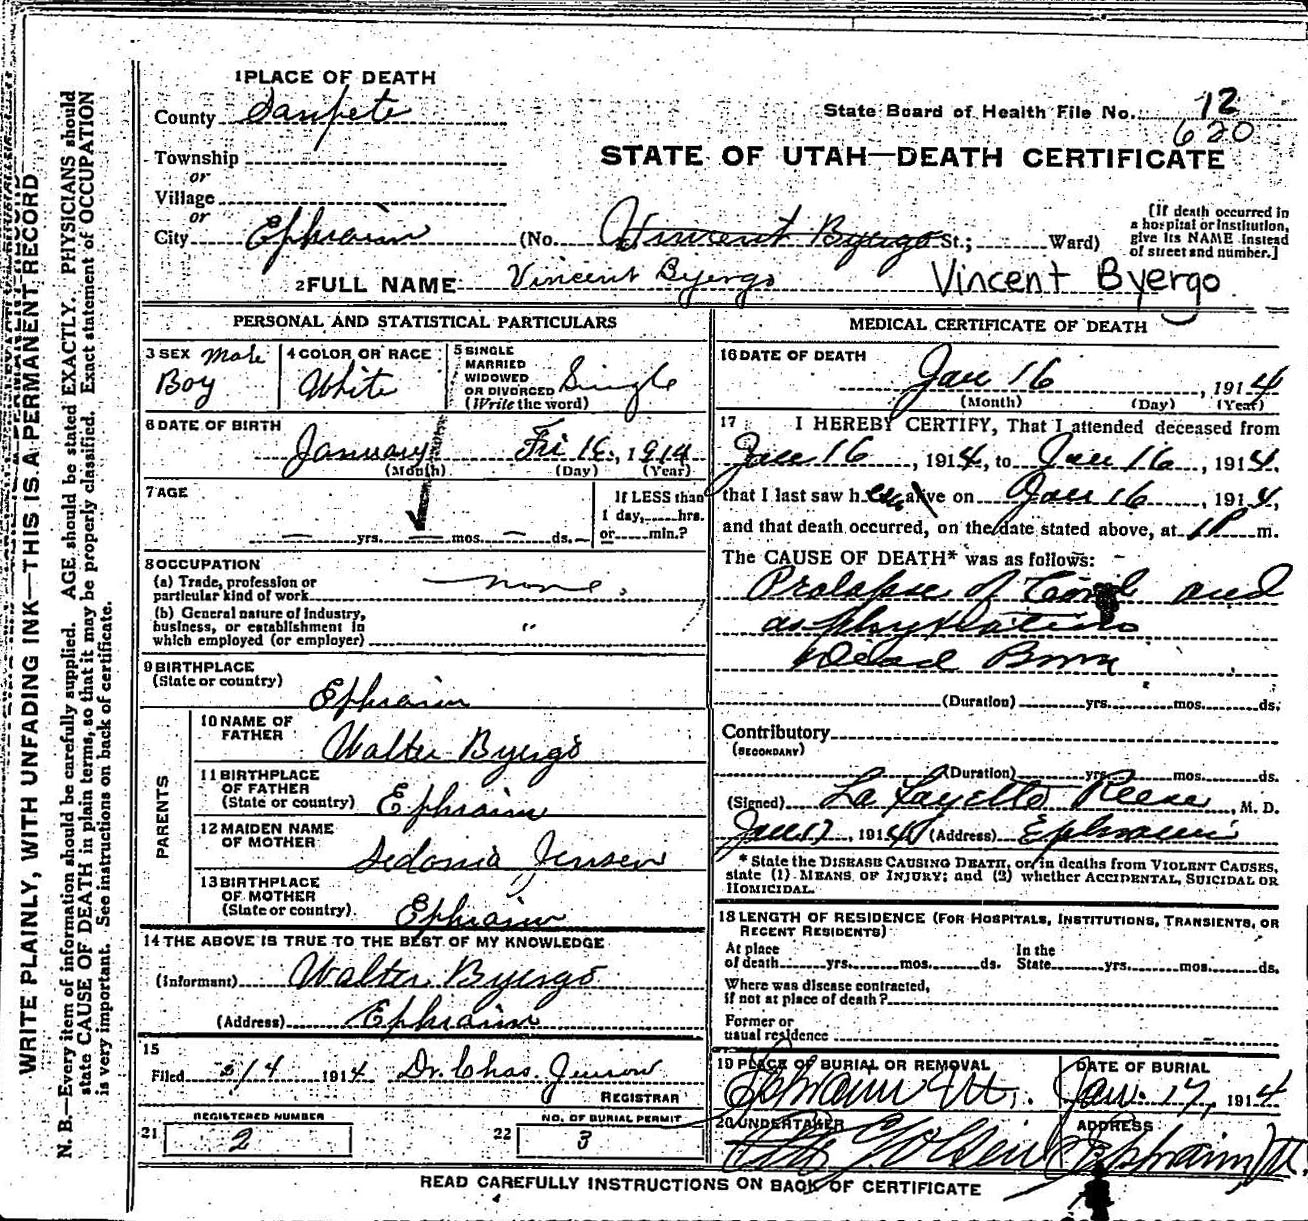 WRITE PLAINLY, WITH UNFADING INK—THIS IS A PERMANENT RECORD
N. B.—Every item of information should be carefully supplied. AGE should be stated EXACTLY. PHYSICIANS should
state CAUSE OF DEATH in plain terms, so that it may be properly classified. Exact statement of OCCUPATION
is very important. See instructions on back of certificate.
1 PLACE OF DEATH
County Sanpete
Township
or
Village
or
City Ephraim
State Board of Health File No. 12
620
STATE OF UTAH—DEATH CERTIFICATE
(No. Vincent Byergo St.; Ward)
[If death occurred in
a hospital or institution,
give its NAME instead
of street and number.]
2 FULL NAME Vincent Byergo Vincent Byergo
PERSONAL AND STATISTICAL PARTICULARS
3 SEX Male
Boy
4 COLOR OR RACE
White
5 SINGLE
MARRIED
WIDOWED
OR DIVORCED
(Write the word)
Single
6 DATE OF BIRTH
January Fri 16, 1914
(Month) (Day) (Year)
7 AGE
— yrs. — mos. — ds.
If LESS than
1 day, hrs.
or min.?
8 OCCUPATION
(a) Trade, profession or
particular kind of work none
(b) General nature of industry,
business, or establishment in
which employed (or employer) "
9 BIRTHPLACE
(State or country)
Ephraim
PARENTS
10 NAME OF
FATHER
Walter Byergo
11 BIRTHPLACE
OF FATHER
(State or country) Ephraim
12 MAIDEN NAME
OF MOTHER
Sedonia Jensen
13 BIRTHPLACE
OF MOTHER
(State or country) Ephraim
14 THE ABOVE IS TRUE TO THE BEST OF MY KNOWLEDGE
(Informant) Walter Byergo
(Address) Ephraim
15
Filed 3/4 1914 Dr. Chas. Jenson
REGISTRAR
REGISTERED NUMBER
21 2
NO. OF BURIAL PERMIT
22 3
MEDICAL CERTIFICATE OF DEATH
16 DATE OF DEATH
Jan 16, 1914
(Month) (Day) (Year)
17 I HEREBY CERTIFY, That I attended deceased from
Jan 16, 1914, to Jan 16, 1914,
that I last saw h alive on Jan 16, 1914,
and that death occurred, on the date stated above, at 1 P m.
The CAUSE OF DEATH* was as follows:
Prolapse of Cord and
asphyxiation
Dead Born
(Duration) yrs. mos. ds.
Contributory
(SECONDARY)
(Duration) yrs. mos. ds.
(Signed) La Fayette Reese, M. D.
Jan 17, 1914 (Address) Ephraim
* State the DISEASE CAUSING DEATH, or, in deaths from VIOLENT CAUSES,
state (1) MEANS OF INJURY; and (2) whether ACCIDENTAL, SUICIDAL OR
HOMICIDAL.
18 LENGTH OF RESIDENCE (FOR HOSPITALS, INSTITUTIONS, TRANSIENTS, OR
RECENT RESIDENTS)
At place
of death yrs. mos. ds.
In the
State yrs. mos. ds.
Where was disease contracted,
if not at place of death?
Former or
usual residence
19 PLACE OF BURIAL OR REMOVAL
Ephraim Ut.
DATE OF BURIAL
Jan. 17, 1914
20 UNDERTAKER
Olsen
ADDRESS
Ephraim, Ut.
READ CAREFULLY INSTRUCTIONS ON BACK OF CERTIFICATE